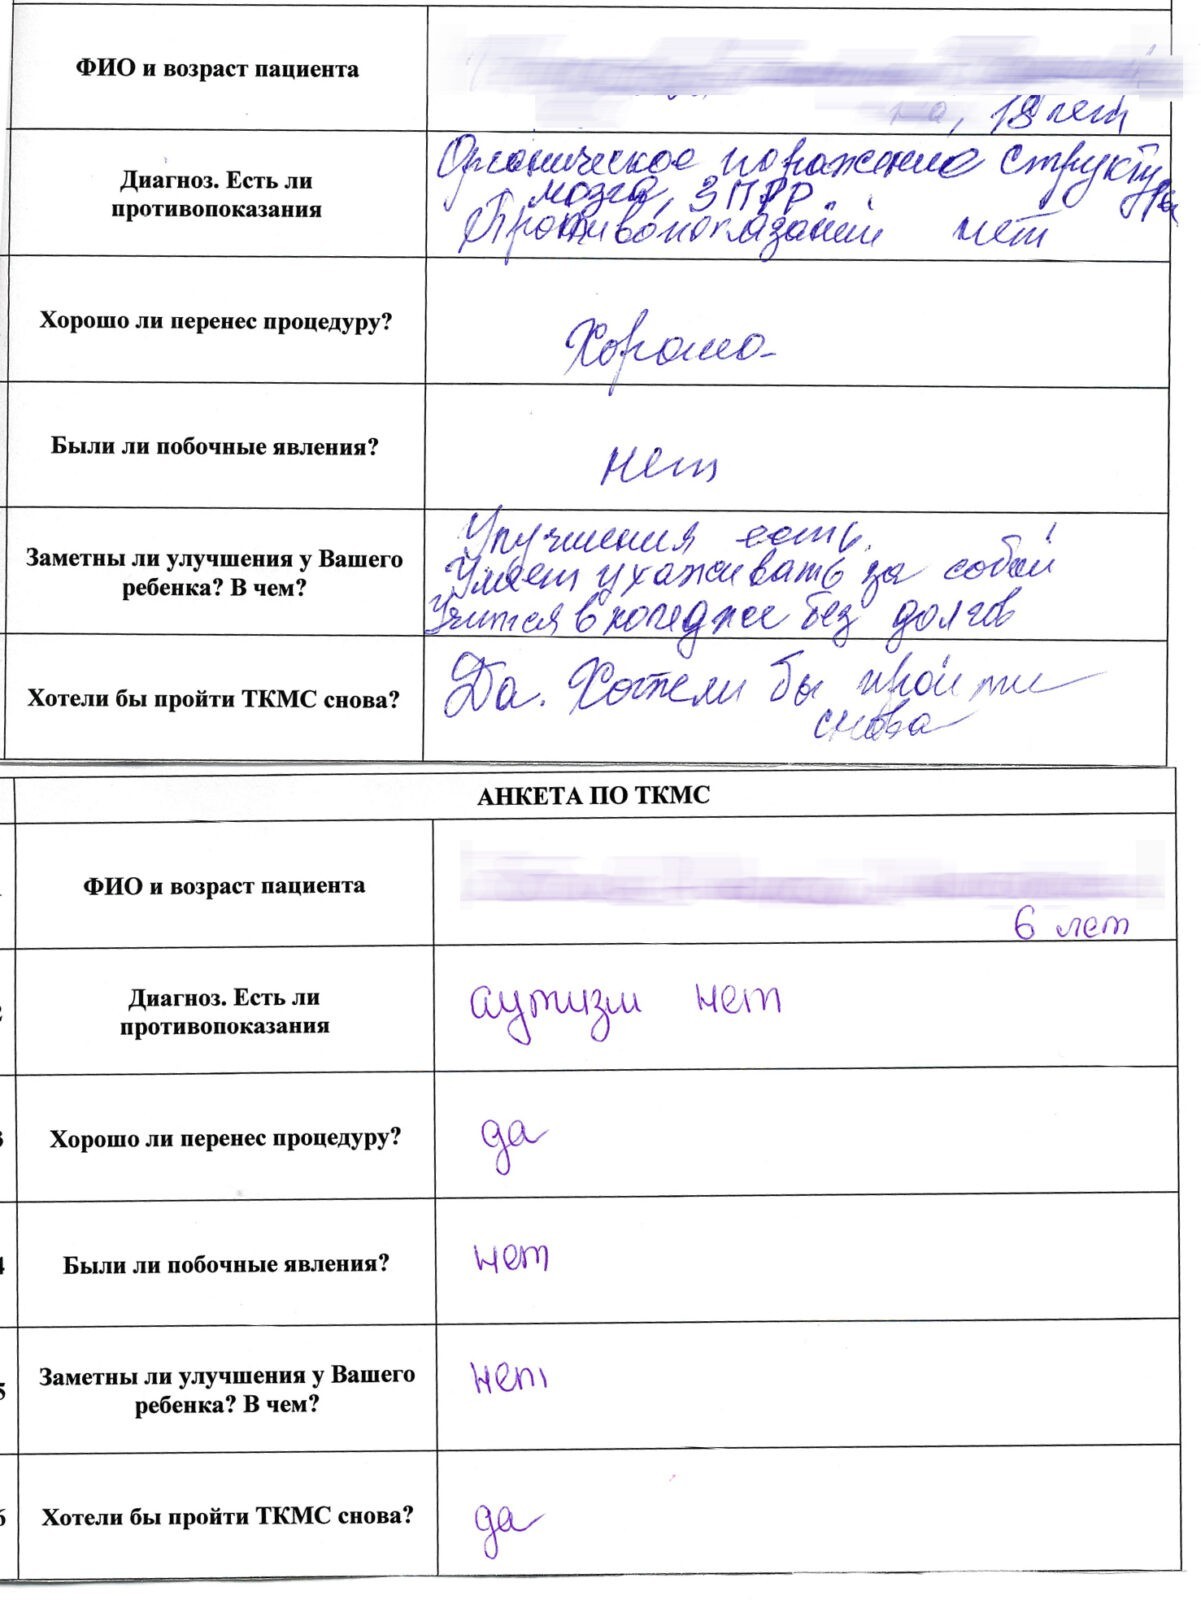 ФИО и возраст пациента
на, 18 лет
Диагноз. Есть ли
противопоказания
Органическое поражение структуры
мозга, ЗПРР
Противопоказаний нет
Хорошо ли перенес процедуру?
Хорошо
Были ли побочные явления?
нет
Заметны ли улучшения у Вашего
ребенка? В чем?
Улучшения есть.
Умеет ухаживать за собой
Учится в коледже без долгов
Хотели бы пройти ТКМС снова?
Да. Хотели бы пройти
снова
АНКЕТА ПО ТКМС
ФИО и возраст пациента
6 лет
2
Диагноз. Есть ли
противопоказания
аутизм нет
3
Хорошо ли перенес процедуру?
да
4
Были ли побочные явления?
нет
5
Заметны ли улучшения у Вашего
ребенка? В чем?
нет
6
Хотели бы пройти ТКМС снова?
да